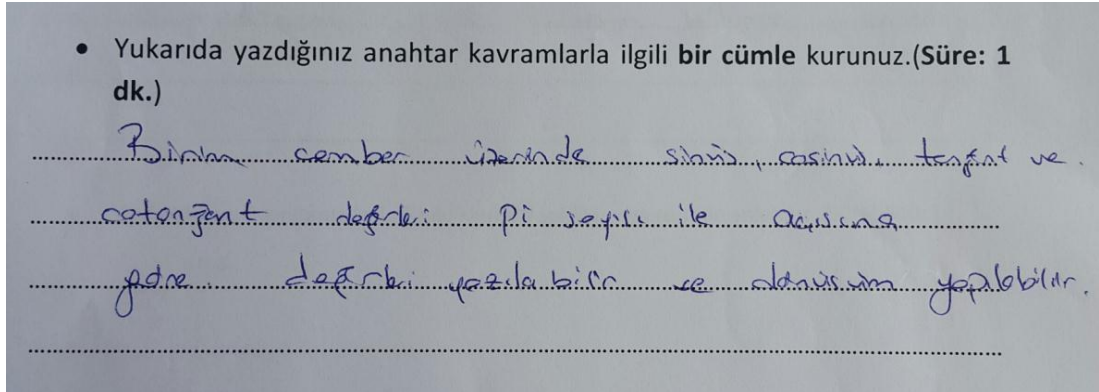 • Yukarıda yazdığınız anahtar kavramlarla ilgili bir cümle kurunuz.(Süre: 1
dk.)
Birim çember üzerinde sinüs, cosinüs, tanjant ve
cotanjant değerleri pi sayısı ile açısına
göre değerleri yazılabilir ve dönüşüm yapılabilir.